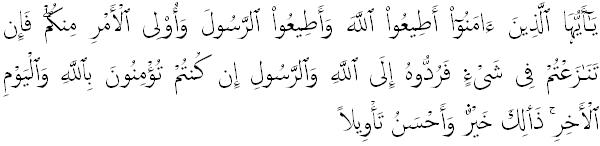 يَـٰٓأَيُّهَا ٱلَّذِينَ ءَامَنُوٓا۟ أَطِيعُوا۟ ٱللَّهَ وَأَطِيعُوا۟ ٱلرَّسُولَ وَأُو۟لِى ٱلْأَمْرِ مِنكُمْ ۖ فَإِن
تَنَـٰزَعْتُمْ فِى شَىْءٍ فَرُدُّوهُ إِلَى ٱللَّهِ وَٱلرَّسُولِ إِن كُنتُمْ تُؤْمِنُونَ بِٱللَّهِ وَٱلْيَوْمِ
ٱلْأَخِرِ ۚ ذَٰلِكَ خَيْرٌ وَأَحْسَنُ تَأْوِيلاً